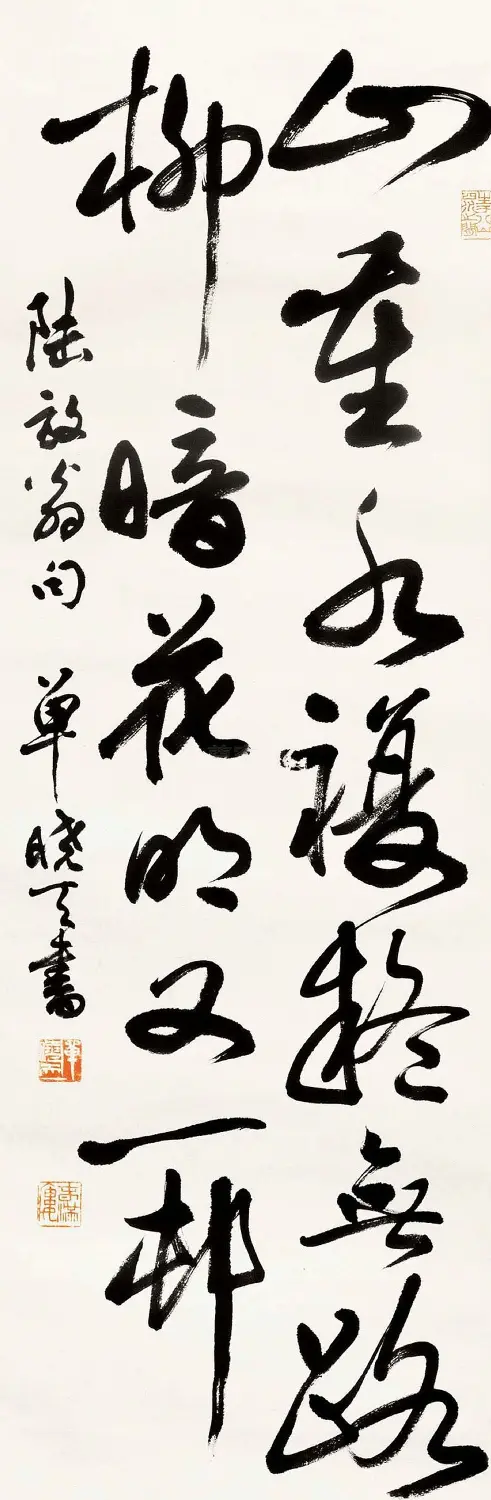 山重水複疑無路
柳暗花明又一邨
陆放翁句 单晓天書